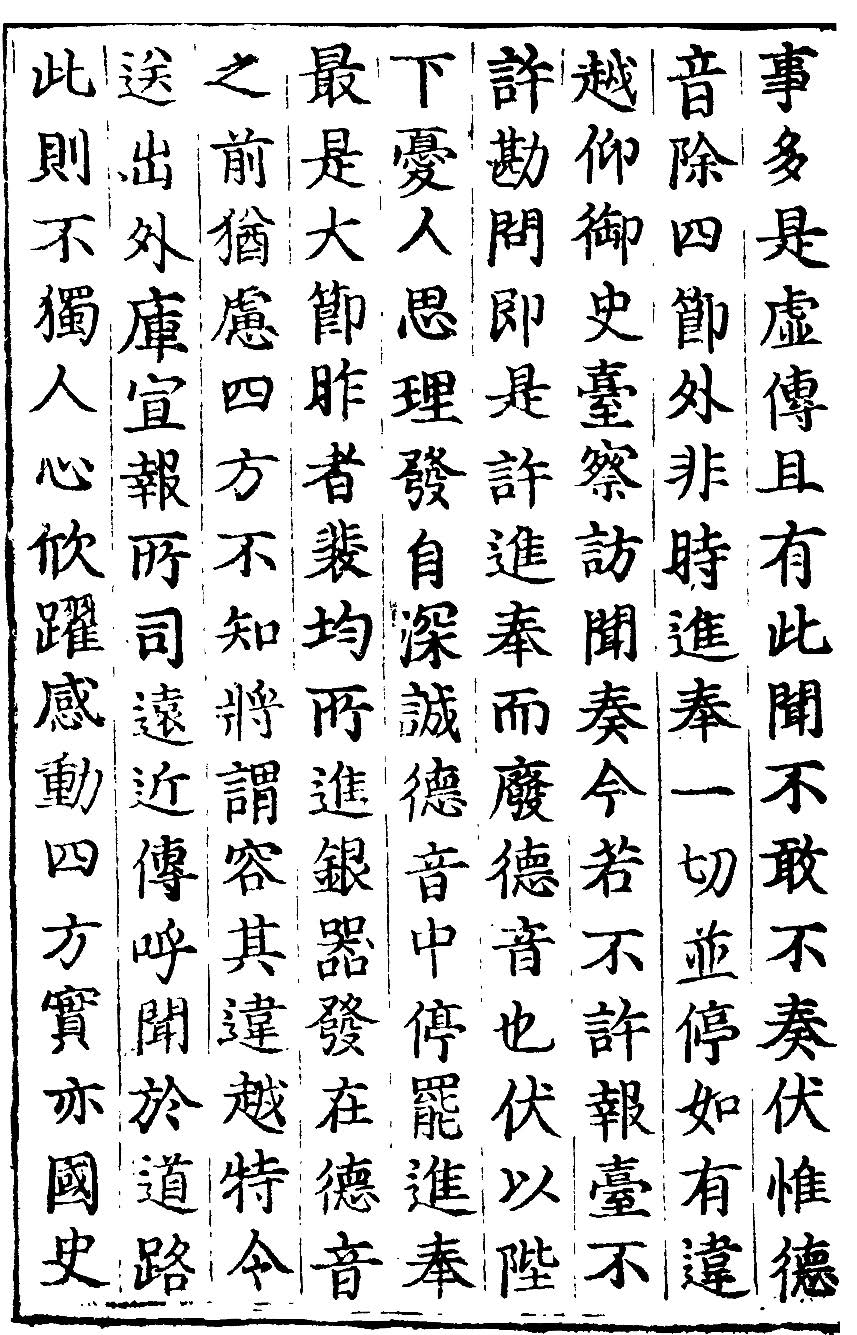 事多是虛傳且有此聞不敢不奏伏惟德
音除四節外非時進奉一切並停如有違
越仰御史臺察訪聞奏今若不許報臺不
許勘問即是許進奉而廢德音也伏以陛
下憂人思理發自深誠德音中停罷進奉
最是大節昨者裴均所進銀器發在德音
之前猶慮四方不知將謂容其違越特令
送出外庫宣報所司遠近傳呼聞於道路
此則不獨人心欣躍感動四方實亦國史